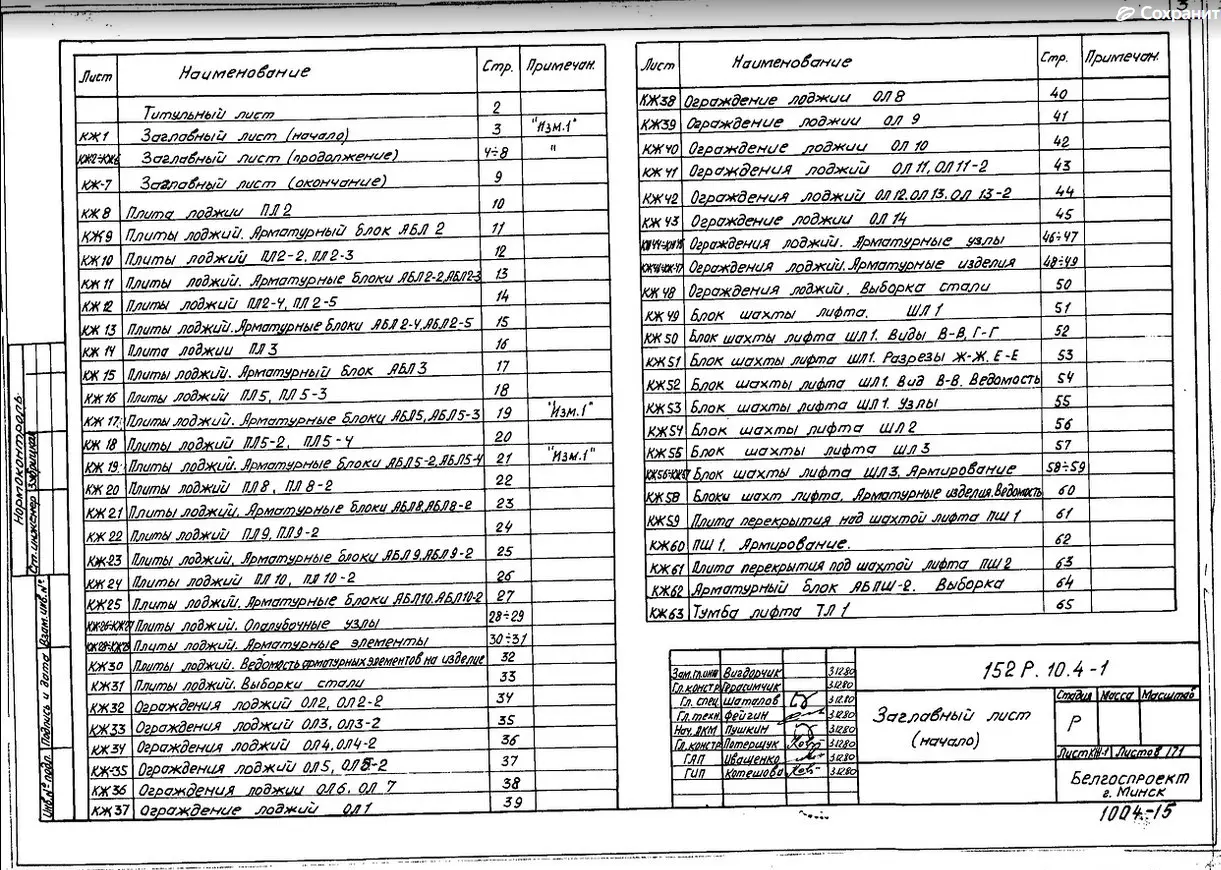 3
Сохранит
Лист Наименование Стр. Примечан.
Титульный лист 2
КЖ1 Заглавный лист (начало) 3 "Изм.1"
КЖ2÷КЖ6 Заглавный лист (продолжение) 4÷8 "
КЖ-7 Заглавный лист (окончание) 9
КЖ8 Плита лоджии ПЛ2 10
КЖ9 Плиты лоджий. Арматурный блок АБЛ 2 11
КЖ10 Плиты лоджий ПЛ2-2, ПЛ2-3 12
КЖ11 Плиты лоджий. Арматурные блоки АБЛ2-2, АБЛ2-3 13
КЖ12 Плиты лоджий ПЛ2-4, ПЛ2-5 14
КЖ13 Плиты лоджий. Арматурные блоки АБЛ2-4, АБЛ2-5 15
КЖ14 Плита лоджии ПЛ3 16
КЖ15 Плиты лоджий. Арматурный блок АБЛ3 17
КЖ16 Плиты лоджий ПЛ5, ПЛ5-3 18
КЖ17 Плиты лоджий. Арматурные блоки АБЛ5, АБЛ5-3 19 "Изм.1"
КЖ18 Плиты лоджий ПЛ5-2, ПЛ5-4 20
КЖ19 Плиты лоджий. Арматурные блоки АБЛ5-2, АБЛ5-4 21 "Изм.1"
КЖ20 Плиты лоджий ПЛ8, ПЛ8-2 22
КЖ21 Плиты лоджий. Арматурные блоки АБЛ8, АБЛ8-2 23
КЖ22 Плиты лоджий ПЛ9, ПЛ9-2 24
КЖ23 Плиты лоджий, Арматурные блоки АБЛ9, АБЛ9-2 25
КЖ24 Плиты лоджий ПЛ10, ПЛ10-2 26
КЖ25 Плиты лоджий. Арматурные блоки АБЛ10, АБЛ10-2 27
КЖ26÷КЖ27 Плиты лоджий. Опалубочные узлы 28÷29
КЖ28÷КЖ29 Плиты лоджий. Арматурные элементы 30÷31
КЖ30 Плиты лоджий. Ведомость арматурных элементов на изделие 32
КЖ31 Плиты лоджий. Выборки стали 33
КЖ32 Ограждения лоджий ОЛ2, ОЛ2-2 34
КЖ33 Ограждения лоджий ОЛ3, ОЛ3-2 35
КЖ34 Ограждения лоджий ОЛ4, ОЛ4-2 36
КЖ-35 Ограждения лоджий ОЛ5, ОЛ5-2 37
КЖ36 Ограждения лоджий ОЛ6, ОЛ7 38
КЖ37 Ограждение лоджий ОЛ1 39
Лист Наименование Стр. Примечан.
КЖ38 Ограждение лоджии ОЛ8 40
КЖ39 Ограждение лоджии ОЛ 9 41
КЖ40 Ограждение лоджии ОЛ 10 42
КЖ41 Ограждения лоджий ОЛ11, ОЛ11-2 43
КЖ42 Ограждения лоджий ОЛ12. ОЛ13. ОЛ 13-2 44
КЖ43 Ограждение лоджии ОЛ 14 45
КЖ44÷КЖ45 Ограждения лоджий. Арматурные узлы 46÷47
КЖ46÷КЖ-47 Ограждения лоджий. Арматурные изделия 48÷49
КЖ48 Ограждения лоджий. Выборка стали 50
КЖ49 Блок шахты лифта. ШЛ1 51
КЖ50 Блок шахты лифта ШЛ1. Виды В-В, Г-Г 52
КЖ51 Блок шахты лифта ШЛ1. Разрезы Ж-Ж, Е-Е 53
КЖ52 Блок шахты лифта ШЛ1. Вид В-В. Ведомость 54
КЖ53 Блок шахты лифта ШЛ1. Узлы 55
КЖ54 Блок шахты лифта ШЛ2 56
КЖ55 Блок шахты лифта ШЛ3 57
КЖ56÷КЖ57 Блок шахты лифта ШЛ3. Армирование 58÷59
КЖ58 Блоки шахт лифта. Арматурные изделия. Ведомость 60
КЖ59 Плита перекрытия над шахтой лифта ПШ1 61
КЖ60 ПШ1. Армирование. 62
КЖ61 Плита перекрытия под шахтой лифта ПШ2 63
КЖ62 Арматурный блок АБПШ-2. Выборка 64
КЖ63 Тумба лифта ТЛ1 65
Нормоконтроль
Ст. инженер
Взам. инв. №
Подпись и дата
Инв. № подл.
Зам. гл. инж Вигдорчик 3.12.80
Гл. констр Герасимчик 3.12.80
Гл. спец Шаталов 3.12.80
Гл. техн. Фейгин 3.12.80
Нач. ДКМ Пушкин 3.12.80
Гл. констр Потерщук 3.12.80
ГАП Иващенко 3.12.80
ГИП Котешова 3.12.80
152 Р. 10.4-1
Заглавный лист
(начало)
Стадия Масса Масштаб
Р
Лист КЖ-1 Листов 171
Белгоспроект
г. Минск
1004-15